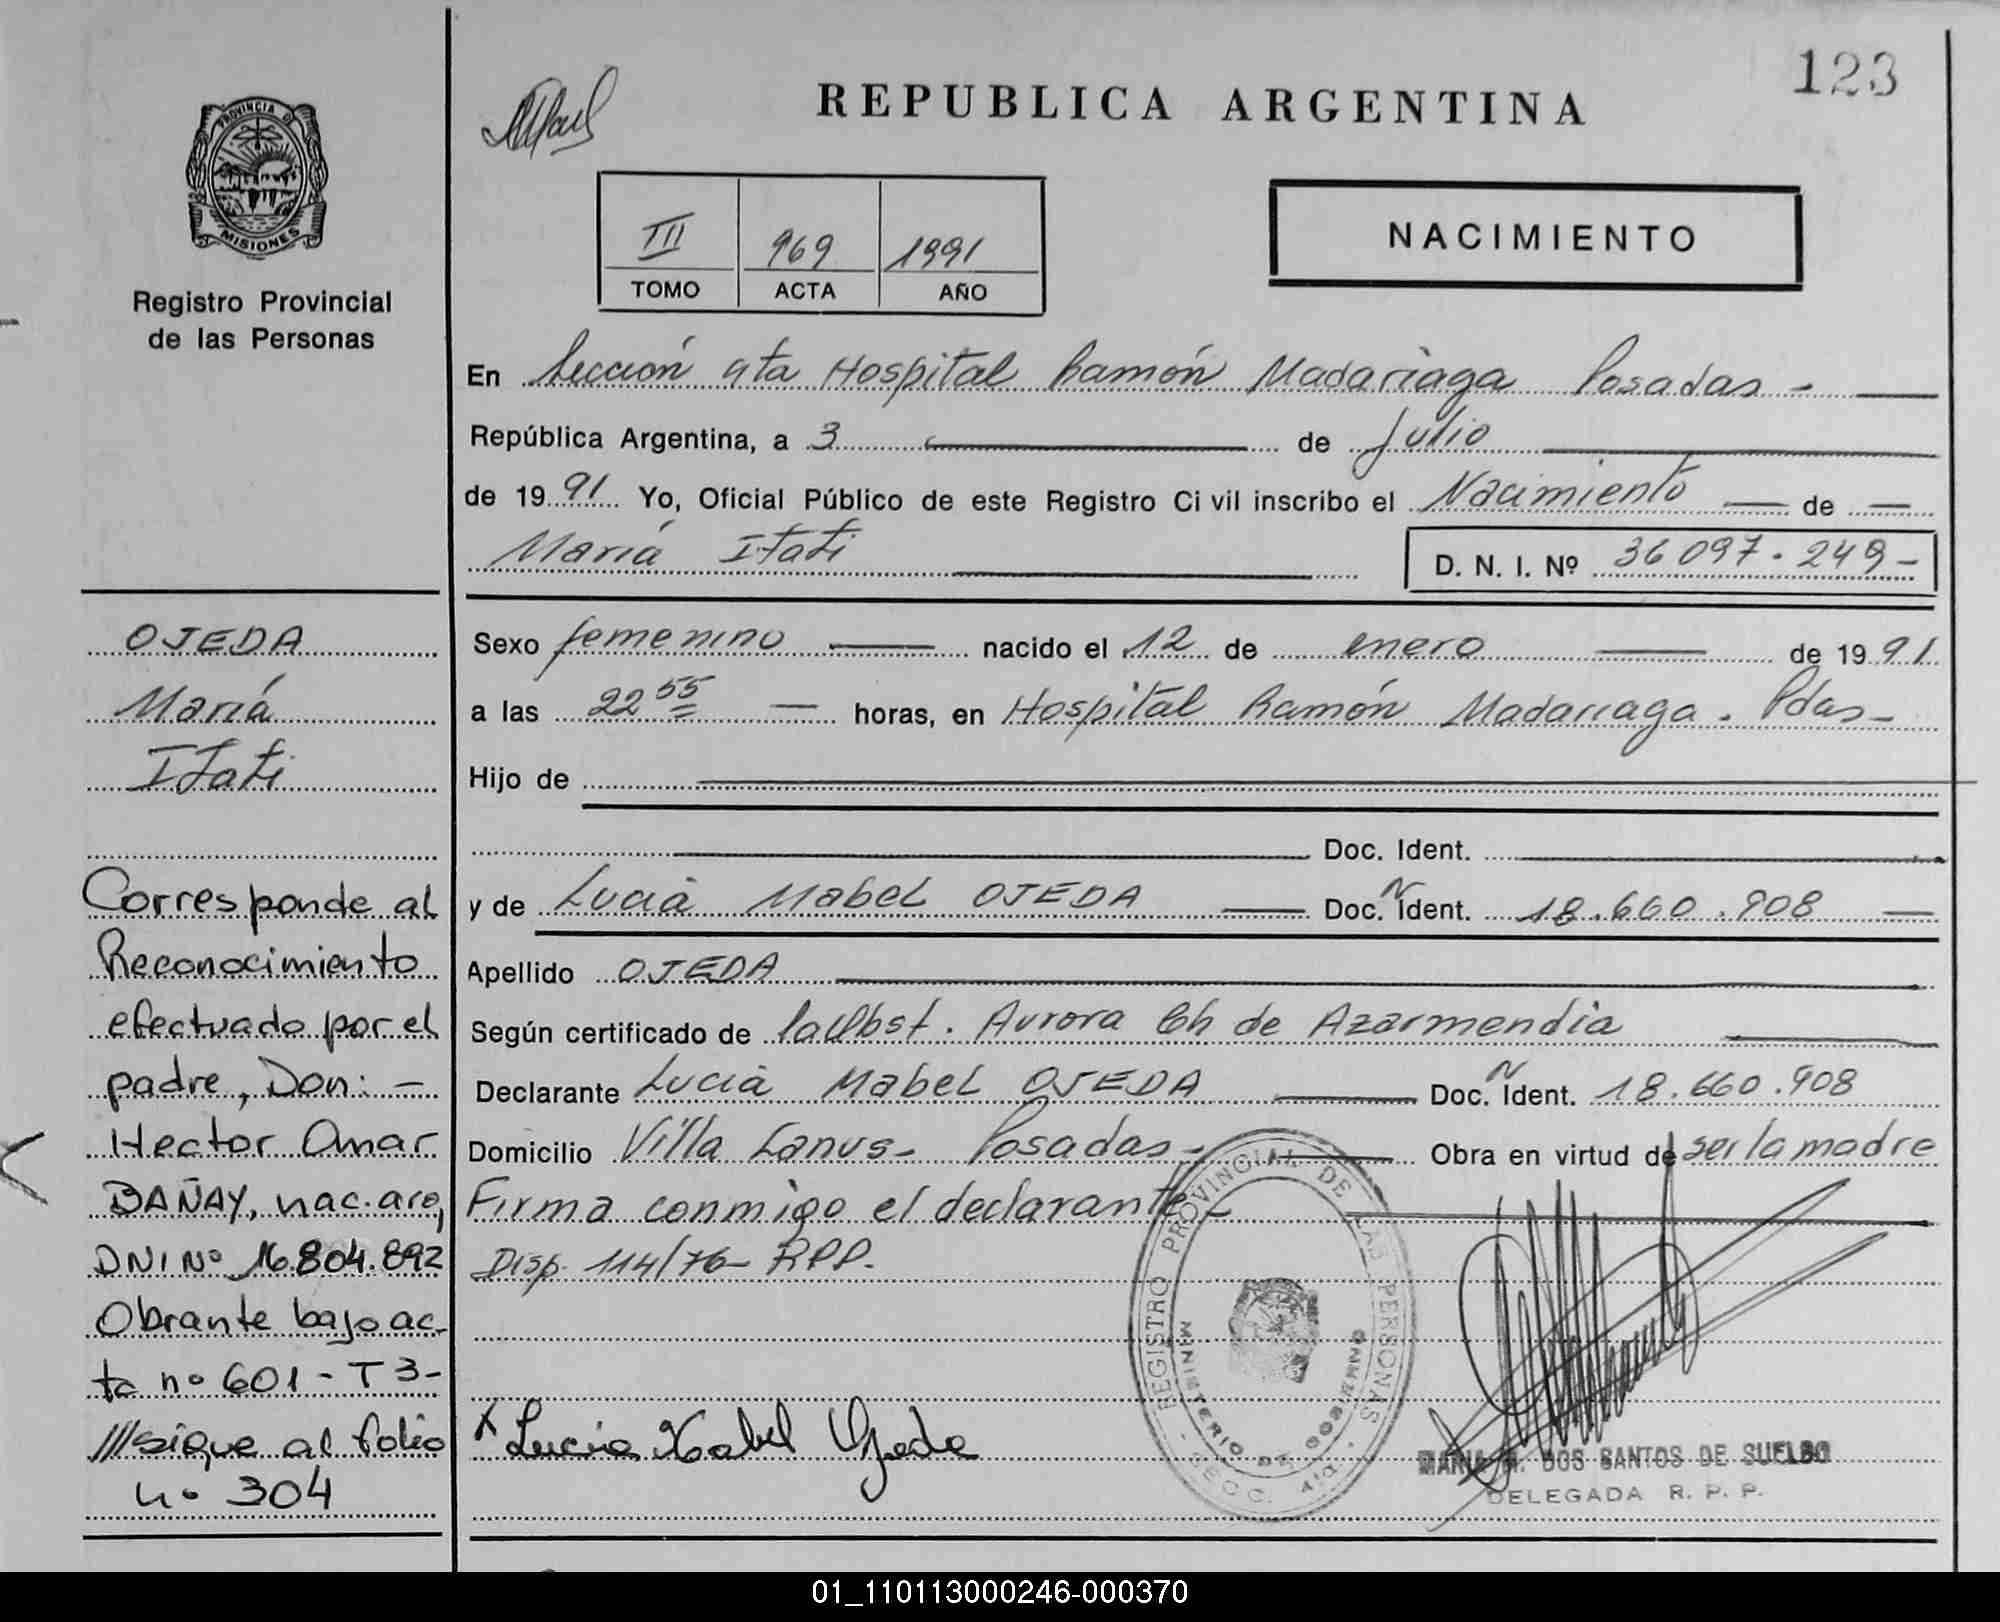 123
REPUBLICA ARGENTINA
PROVINCIA DE
MISIONES
Registro Provincial
de las Personas
NACIMIENTO
III 969 1991
TOMO ACTA AÑO
En Sección 4ta Hospital Ramón Madariaga Posadas -
República Argentina, a 3 de Julio
de 1991 Yo, Oficial Público de este Registro Civil inscribo el Nacimiento de
María Itati D. N. I. Nº 36 097.249-
Sexo femenino nacido el 12 de enero de 1991
a las 22 55 horas, en Hospital Ramón Madariaga. Pdas-
Hijo de
Doc. Ident.
y de Lucia Mabel OJEDA Doc. N Ident. 18.660.908
Apellido OJEDA
Según certificado de la Obst. Aurora Ch de Azarmendia
Declarante Lucia Mabel OJEDA Doc. N Ident. 18.660.908
Domicilio Villa Lanus- Posadas- Obra en virtud de ser la madre
Firma conmigo el declarante-
Disp. 114/76- RPP.
X Lucia Mabel Ojeda
REGISTRO PROVINCIAL DE LAS PERSONAS
MINISTERIO DE GOBIERNO
SECC. 4ta.
MARIA DOS SANTOS DE SUELDO
DELEGADA R. P. P.
OJEDA
María
Itati
Corresponde al
Reconocimiento
efectuado por el
padre, Don: -
Hector Omar
BAÑAY, nac. arg,
DNI Nº 16.804.892
Obrante bajo ac-
ta nº 601 - T 3-
///sigue al folio
nº 304
01_110113000246-000370